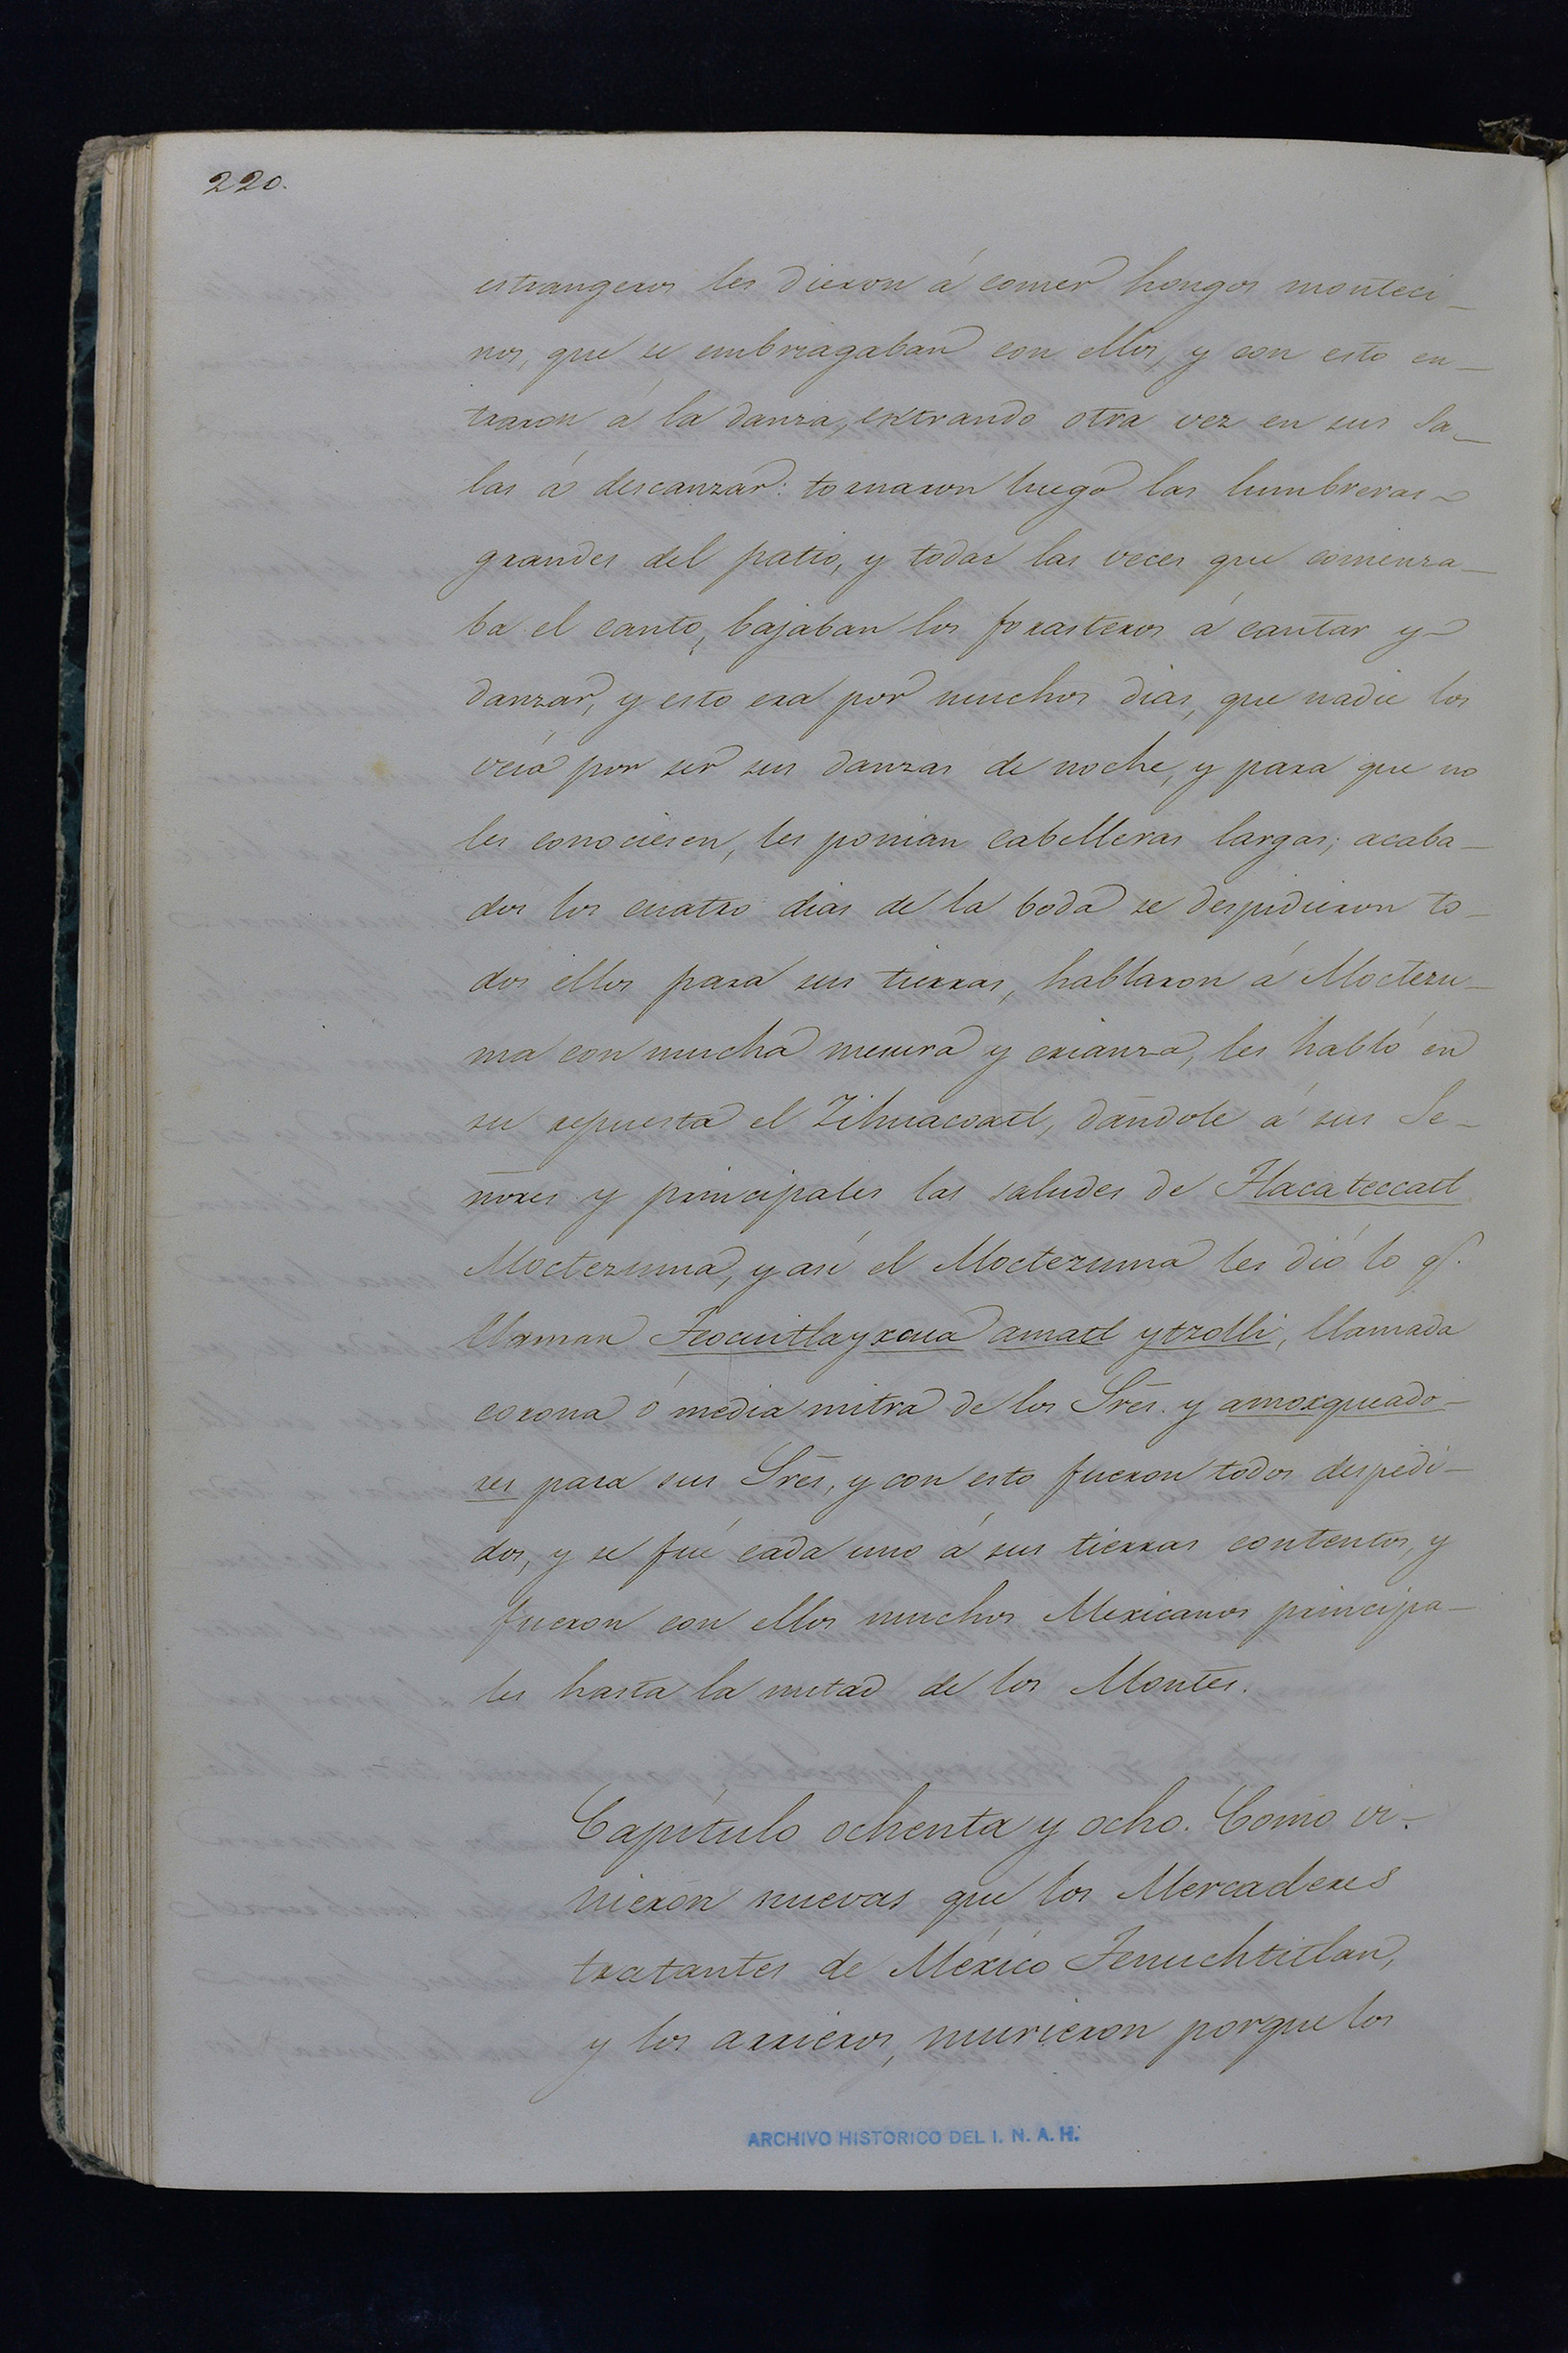 220.
estrangeros les dieron á comer hongos monteci-
nos, que se embriagaban con ellos, y con esto en-
traron á la danza, entrando otra vez en sus Sa-
las á descanzar: tornaron luego las lumbreras
grandes del patio, y todas las veces que comenza-
ba el canto, bajaban los forasteros á cantar y
danzar, y esto era por muchos dias, que nadie los
veía por ser sus danzas de noche, y para que no
les conociesen, les ponian cabelleras largas; acaba-
dos los cuatro dias de la boda se despidieron to-
dos ellos para sus tierras, hablaron á Moctezu-
ma con mucha mesura y crianza, les habló en
su repuesta el Zihuacoatl, dándole á sus Se-
ñores y principales las saludes de Tlacateccatl
Moctezuma, y así el Moctezuma les dió lo q.
llaman Teocuitlayxcua amatl ytzolli, llamada
corona ó media mitra de los Sres. y amosqueado-
res para sus Sres, y con esto fueron todos despedi-
dos, y se fué cada uno á sus tierras contentos, y
fueron con ellos muchos Mexicanos principa-
les hasta la mitad de los Montes.
Capítulo ochenta y ocho. Como vi-
nieron nuevas que los Mercaderes
tratantes de México Tenuchtitlan,
y los arrieros, murieron porque los
ARCHIVO HISTORICO DEL I. N. A. H.